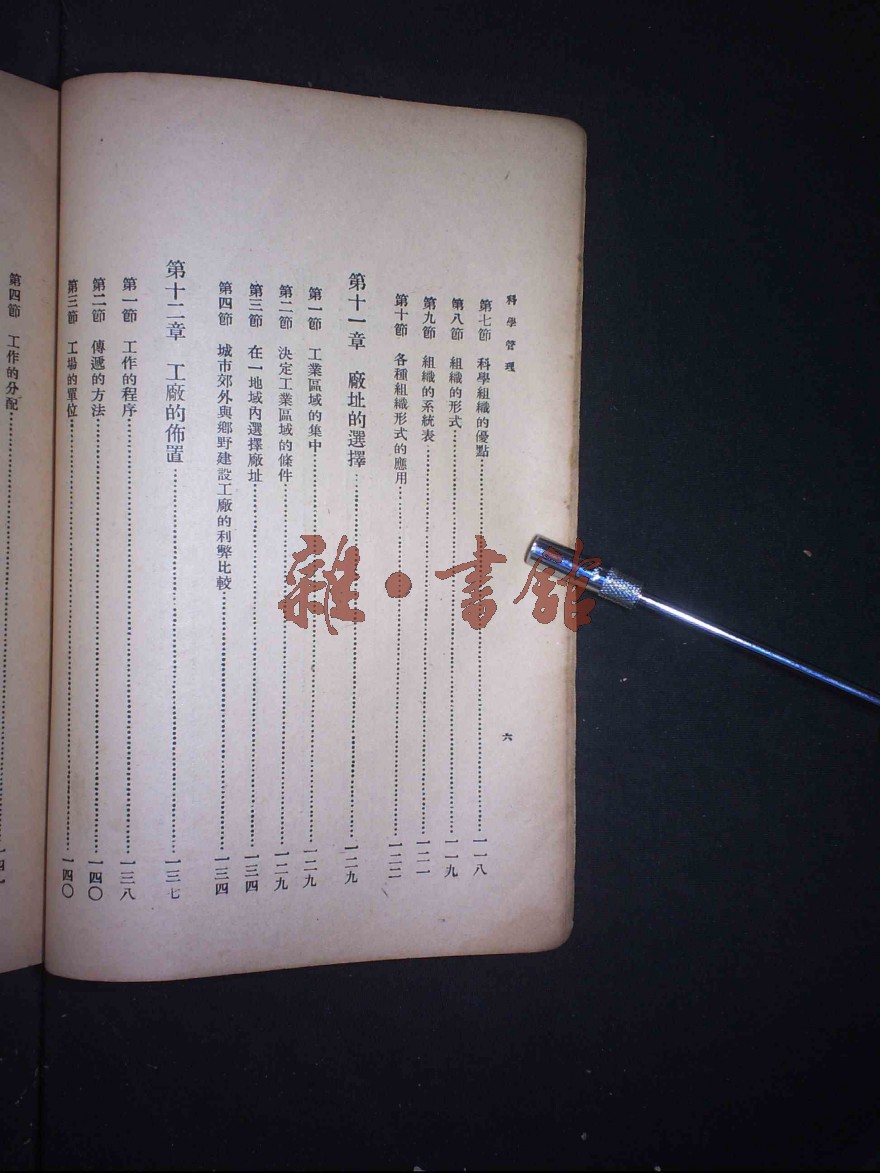 科學管理
六
第七節 科學組織的優點……一一八
第八節 組織的形式……一一九
第九節 組織的系統表……一二一
第十節 各種組織形式的應用……一二二
第十一章 廠址的選擇……一二九
第一節 工業區域的集中……一二九
第二節 決定工業區域的條件……一二九
第三節 在一地域內選擇廠址……一三四
第四節 城市郊外與鄉野建設工廠的利弊比較……一三四
第十二章 工廠的佈置……一三七
第一節 工作的程序……一三八
第二節 傳遞的方法……一四〇
第三節 工場的單位……一四〇
第四節 工作的分配……
雜·書館